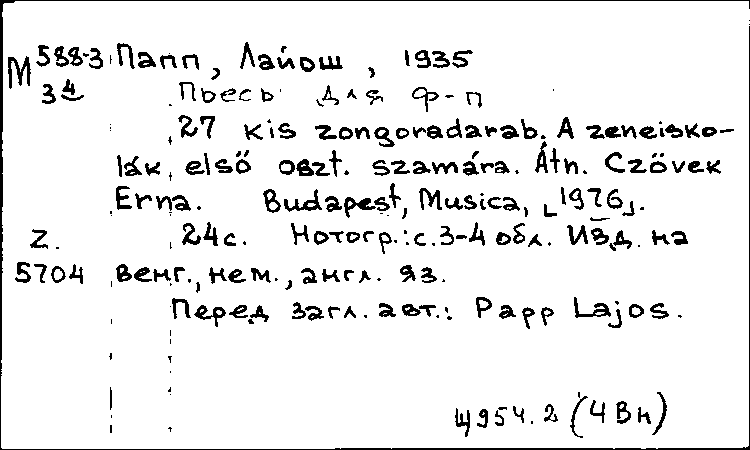 М 588-3 Папп, Лайош, 1935
34 Пьесы для ф-п
27 kis zongoradarab. A zeneisko-
lák első oszt. számára. Átn. Czövek
Erna. Budapest, Musica, [1976].
Z. 24с. Нотогр.: с.3-4 обл. Изд. на
5704 венг., нем., англ. яз.
Перед загл. авт.: Papp Lajos.
Щ954.2 (4Вн)